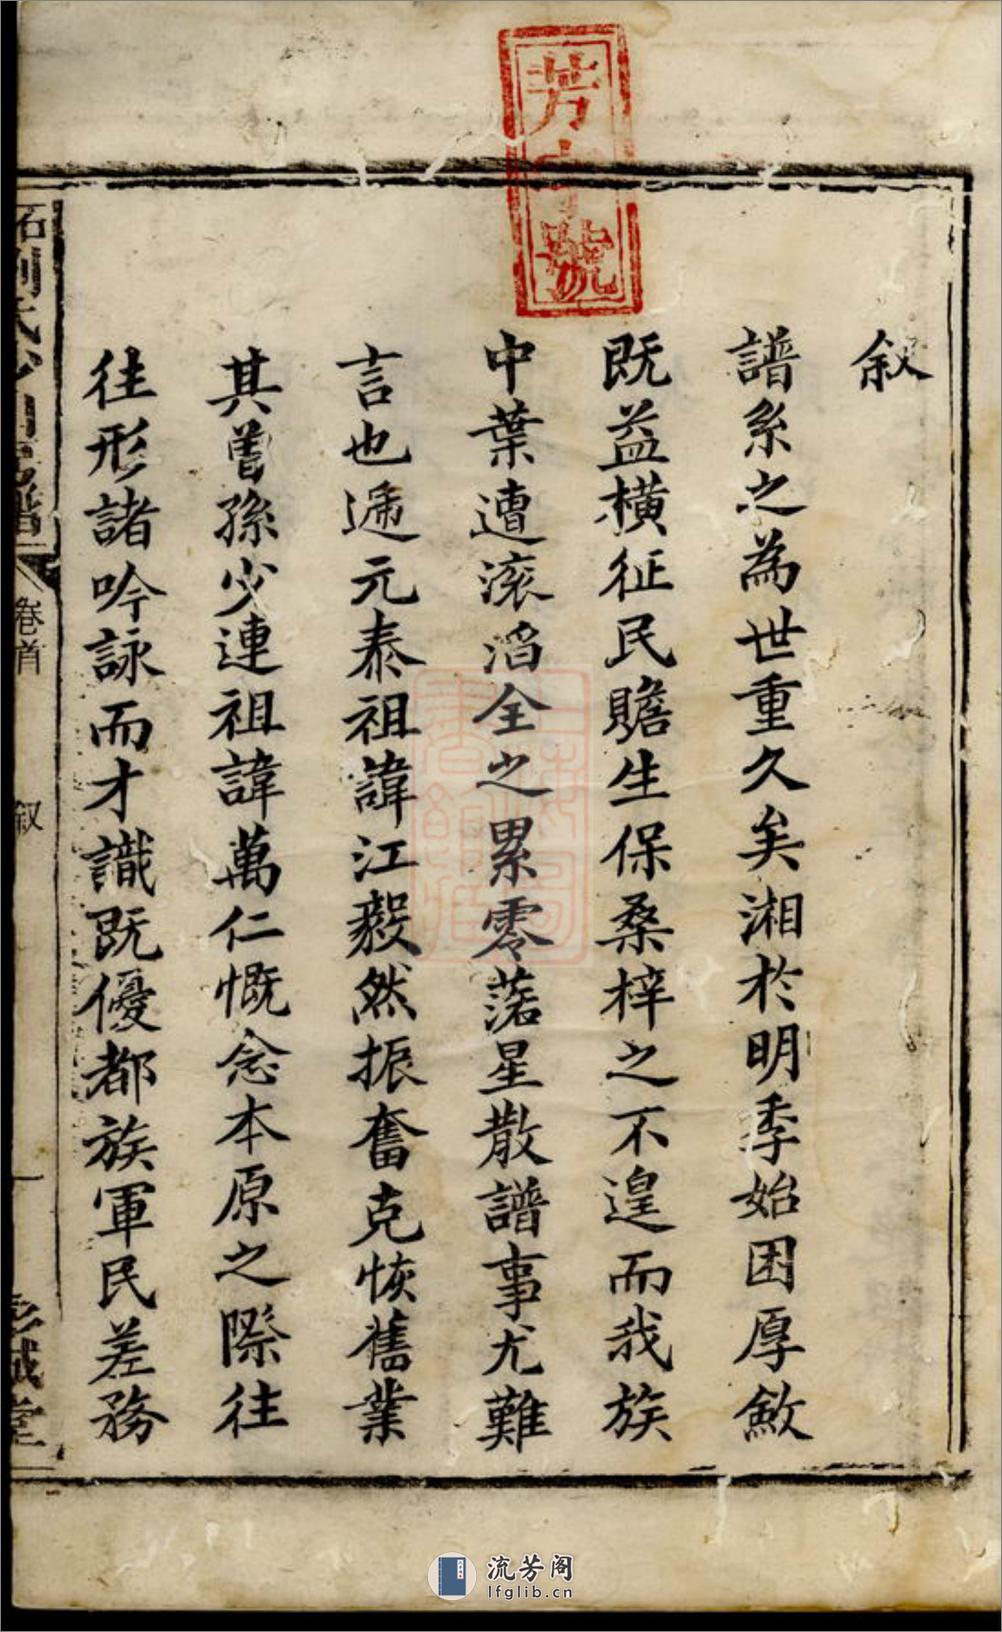 芳
號
叙
譜系之為世重久矣湘於明季始困厚斂
既益橫征民贍生保桑梓之不遑而我族
中葉遭滚滔全之累零落星散譜事尤難
言也遞元泰祖諱江毅然振奮克恢舊業
其曾孫少連祖諱萬仁慨念本原之際往
往形諸吟詠而才識既優都族軍民差務
卷首
叙
一
彭城堂
流芳阁
lfglib.cn